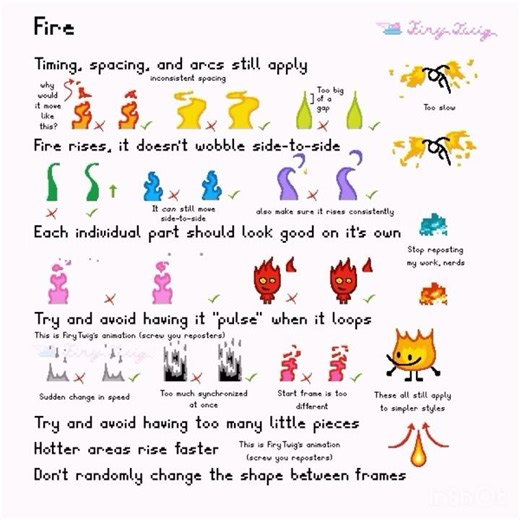 Fire
FiryTwig
Timing, spacing, and arcs still apply
inconsistent spacing
why
would
it move
like
this?
Too big
of a
gap
Too slow
Fire rises, it doesn't wobble side-to-side
It can still move
side-to-side
also make sure it rises consistently
Each individual part should look good on it's own
Stop reposting
my work, nerds
Try and avoid having it "pulse" when it loops
This is FiryTwig's animation (screw you reposters)
FiryTwig
Sudden change in speed
Too much synchronized
at once
Start frame is too
different
These all still apply
to simpler styles
Try and avoid having too many little pieces
Hotter areas rise faster
This is FiryTwig's animation
(screw you reposters)
Don't randomly change the shape between frames